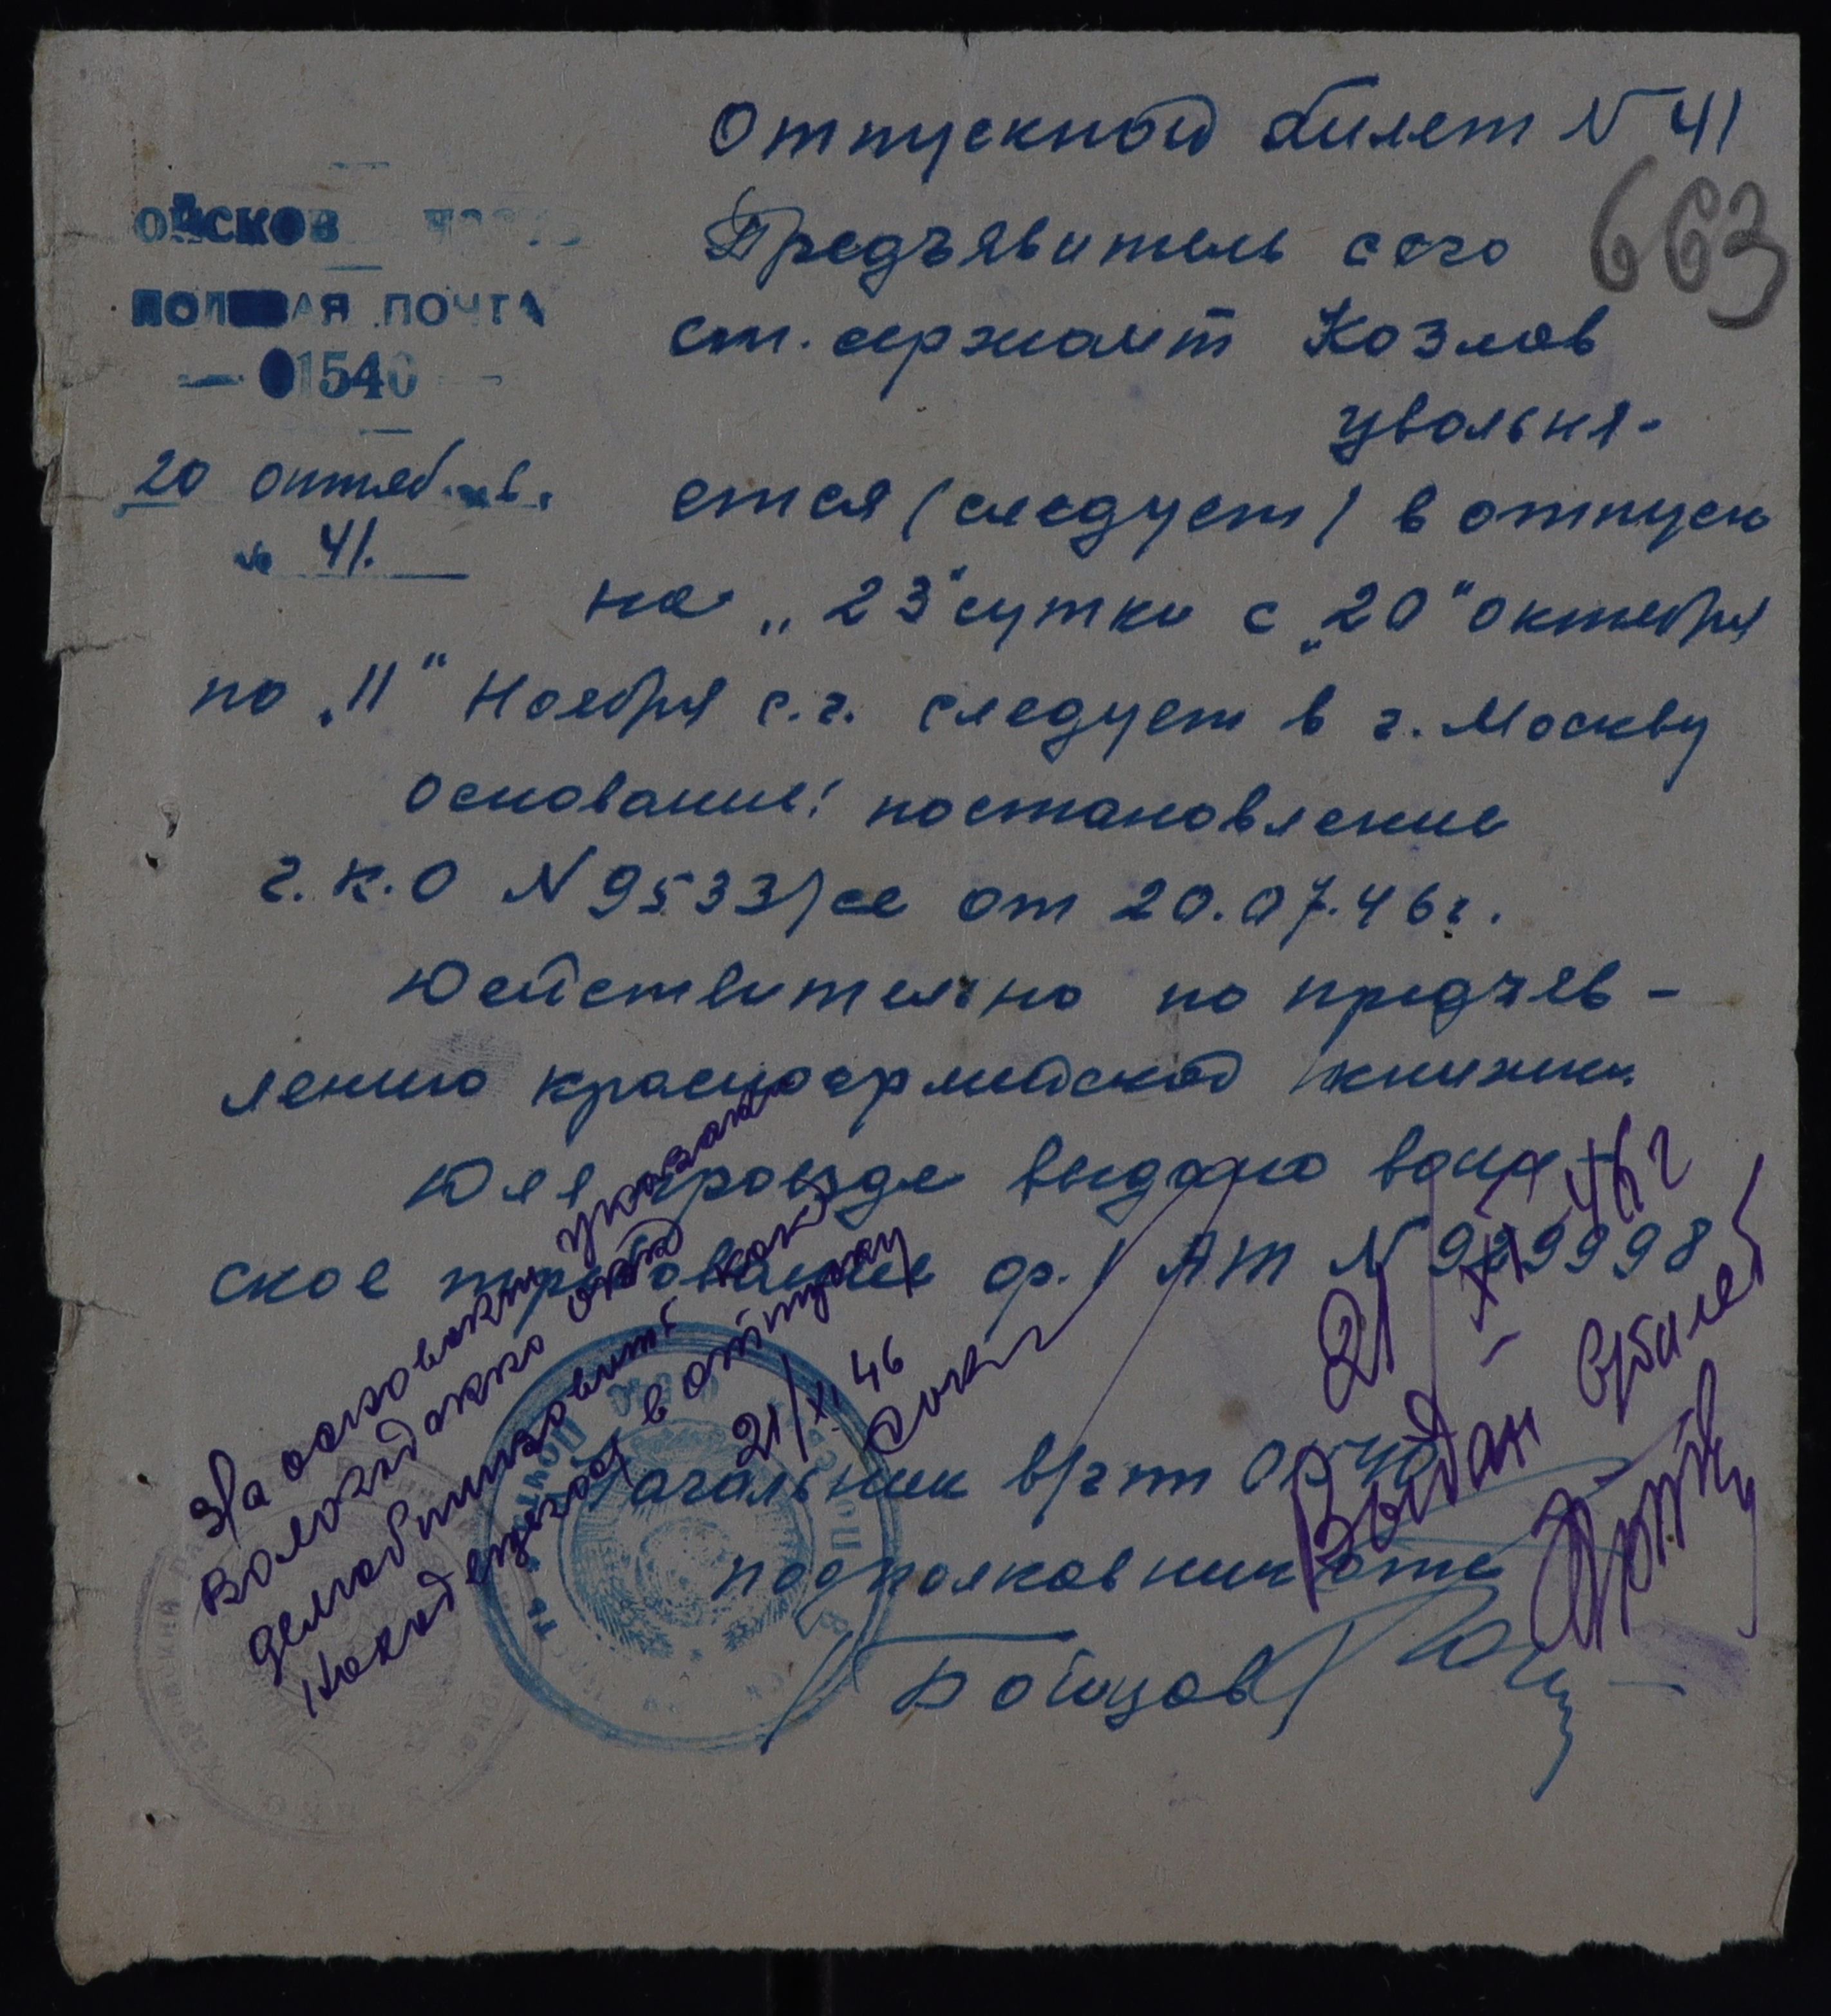 Отпускной билет N 41
663
ойсков
полевая почта
01540
20 октяб. 46.
№ 41.
Предъявитель сего
ст. сержант Козлов
увольня-
ется (следует) в отпуск
на „23" сутки с „20" октября
по „11" Ноября с.г. следует в г. Москву
основание: постановление
г.к.о N 9533/се от 20.07.46г.
Действительно по предъяв-
лению красноармейской книжки.
Для проезда выдано воин-
ское требование ф.1 АТ N 999998
Начальник в/ч пп 01540
подполковник
/Бойцов/
На основании указания
демобилизовать как
находящегося в отпуску
21/XI 46
21/XI-46г
Выдан в/билет